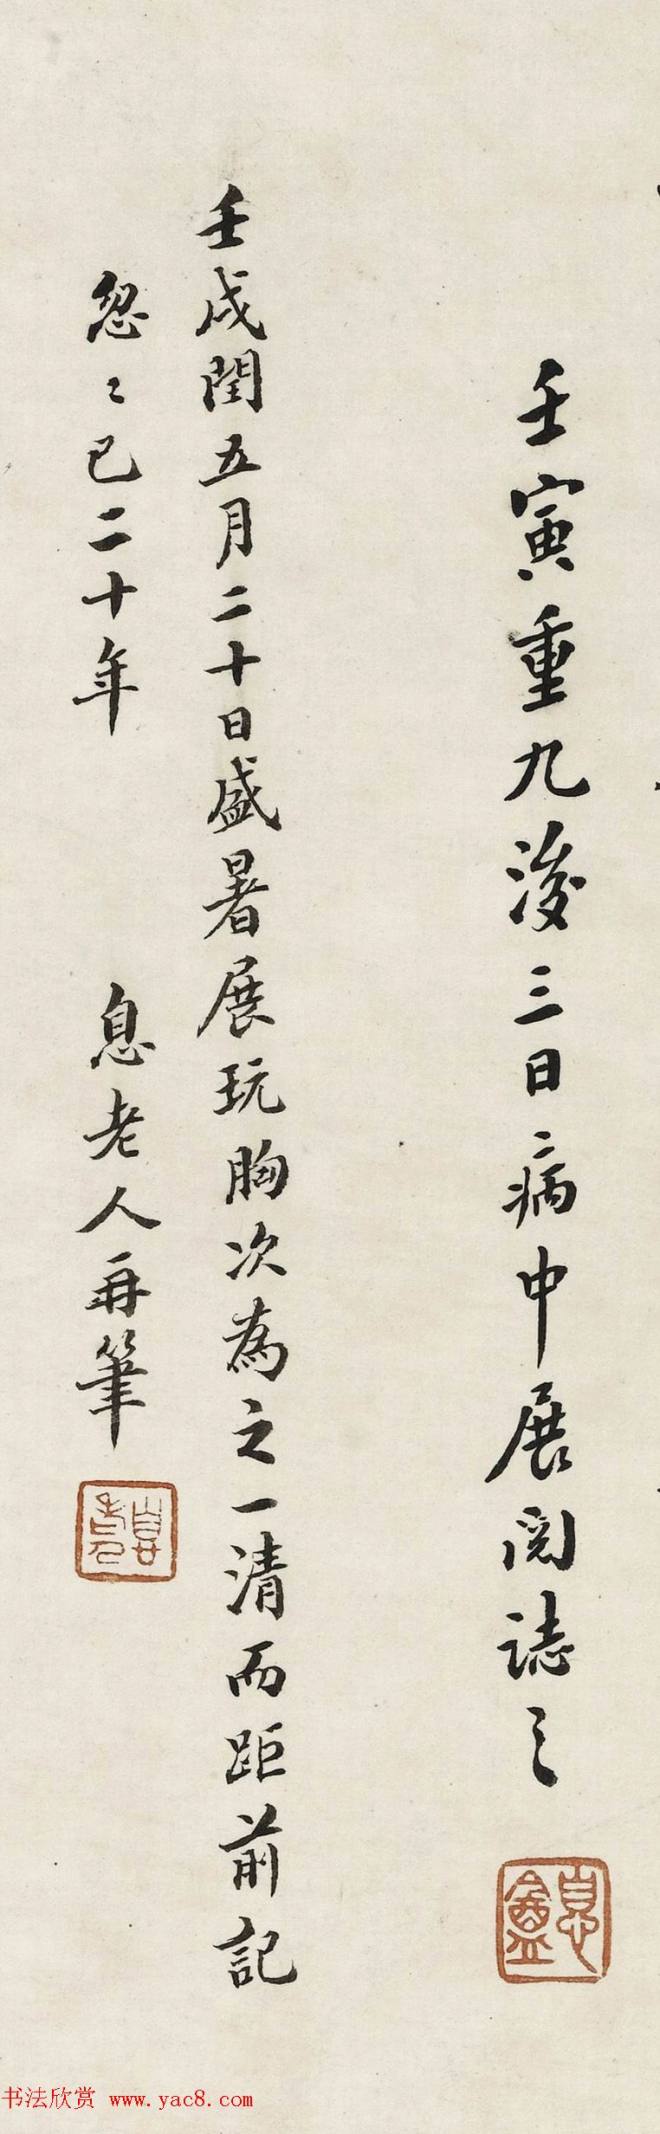 壬寅重九后三日病中展阅誌之
壬戌閏五月二十日盛暑展玩胸次為之一清而距前記
忽〻已二十年 息老人再筆
书法欣赏 www.yac8.com